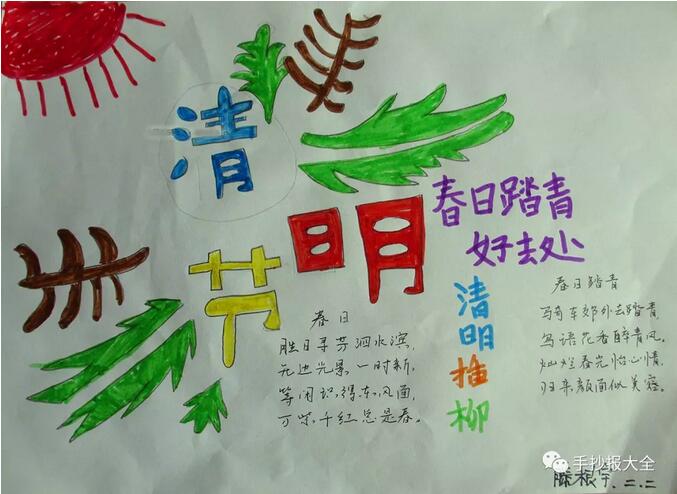 清
明
节
春日踏青
好去处
清明插柳
春日
胜日寻芳泗水滨,
无边光景一时新,
等闲识得东风面,
万紫千红总是春。
春日踏青
骑车郊外去踏青,
鸟语花香醉青风。
灿烂春光怡心情,
归来颜面似
手抄报大全
二.二